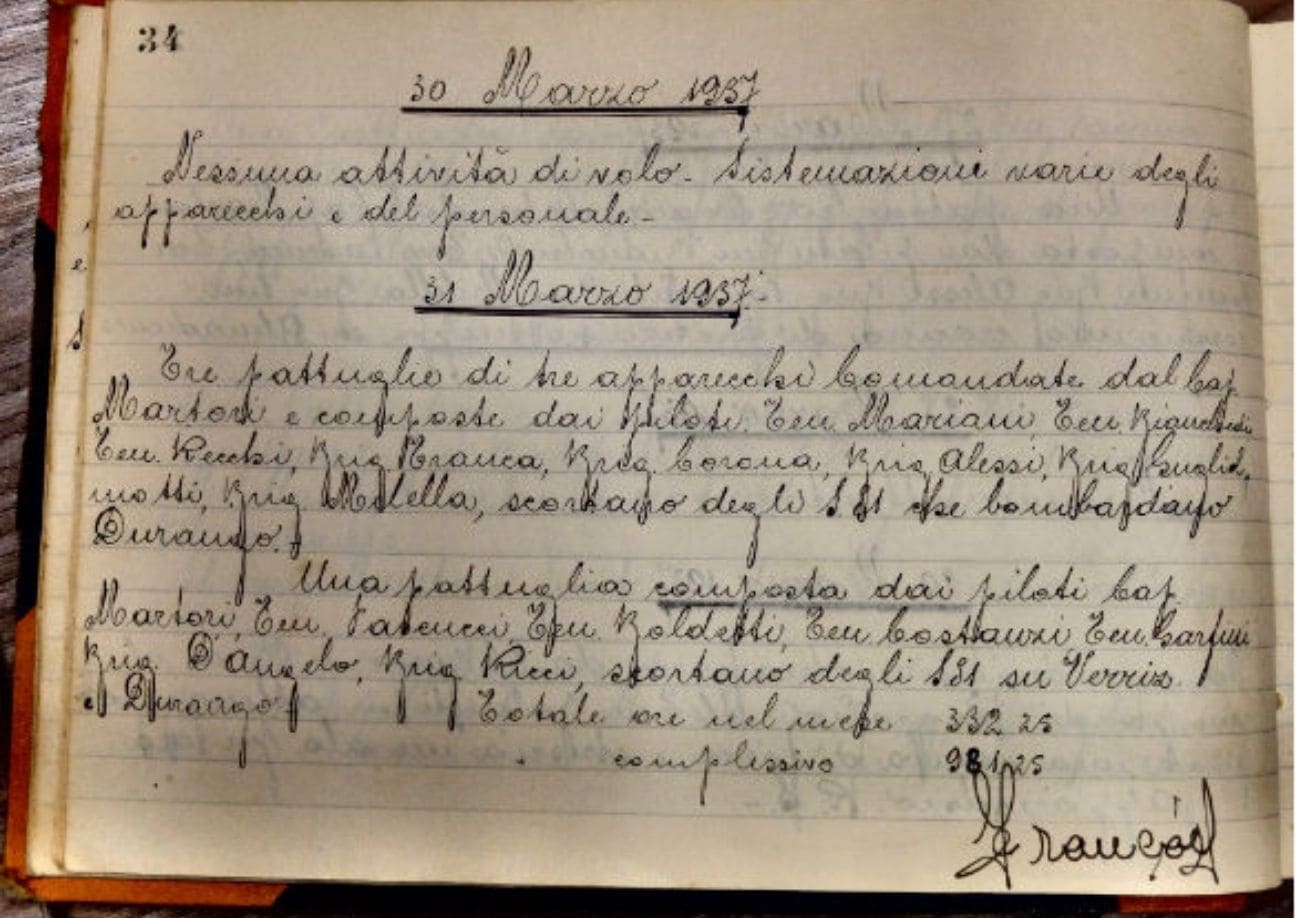 34
30 Marzo 1937
Nessuna attività di volo - Sistemazioni varie degli
apparecchi e del personale -
31 Marzo 1937.
Tre pattuglie di tre apparecchi Comandate dal Cap.
Martori e composte dai piloti. Ten. Mariani, Ten.
Ten. Recchi, Brig. Franca, Brig. Corona, Brig. Alessi, Brig. Gugliel,
motti, Brig. Melella, scortano degli S.81 che bombardano
Durango.
Una pattuglia composta dai piloti Cap.
Martori, Ten. Pascucci, Ten. Boldetti, Ten. Costanzi, Ten.
Brig. D'Angelo, Brig. Ricci, scortano degli S81 su Verriz
e Durango. Totale ore nel mese 332 25
" complessivo 981,25